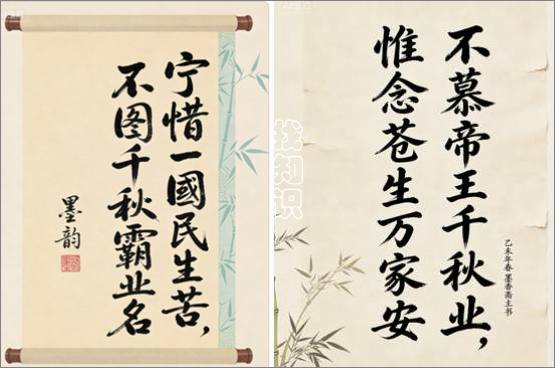 宁惜一國民生苦，
不图千秋霸业名
墨韵
不慕帝王千秋业，
惟念苍生万家安
乙未年春墨香斋主书
找知识